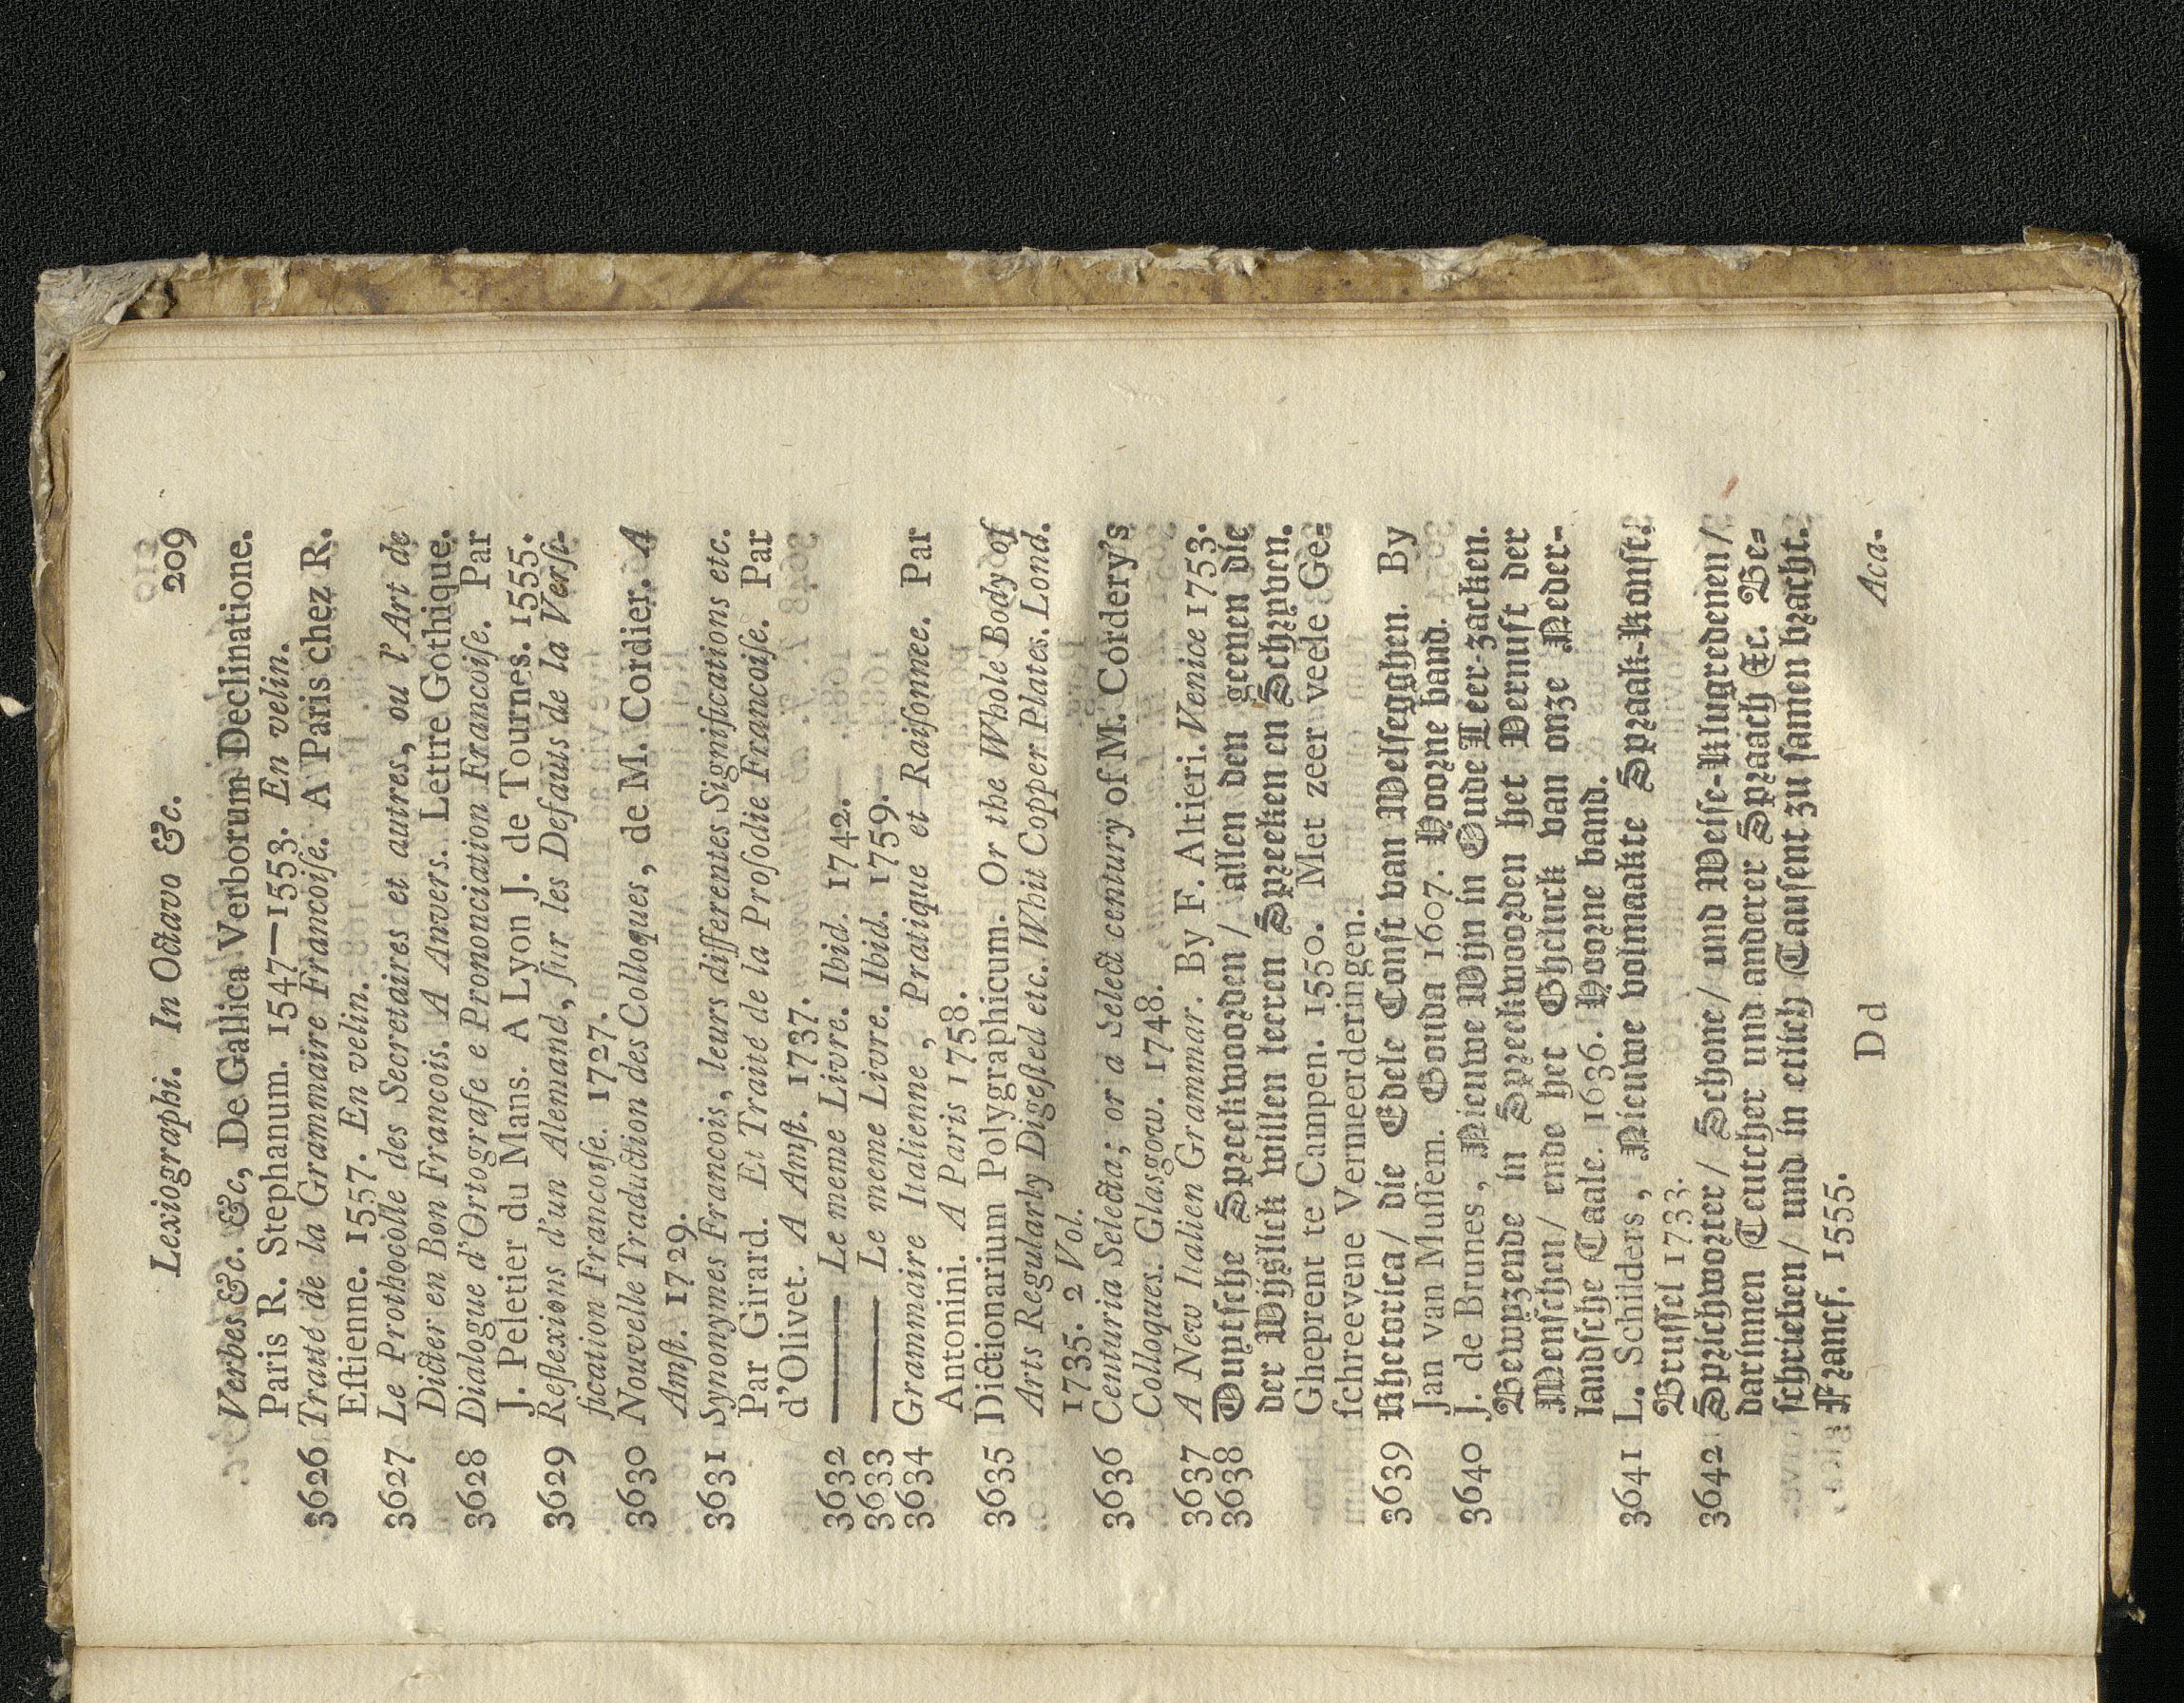 Lexiographi. In Octavo &c. 209
Verbes &c. &c, De Gallica Verborum Declinatione.
Paris R. Stephanum. 1547—1553. En velin.
3626 Traité de la Grammaire Francoiſe. A Paris chez R.
Eſtienne. 1557. En velin.
3627 Le Prothocolle des Secretaires et autres, ou l'Art de
Dicter en Bon Francois. A Anvers. Lettre Gothique.
3628 Dialogue d'Ortografe e Prononciation Francoiſe. Par
J. Peletier du Mans. A Lyon J. de Tournes. 1555.
3629 Reflexions d'un Alemand, ſur les Defauts de la Verſi-
fication Francoiſe. 1727.
3630 Nouvelle Traduction des Colloques, de M. Cordier. A
Amſt. 1729.
3631 Synonymes Francois, leurs differentes Significations etc.
Par Girard. Et Traité de la Proſodie Francoiſe. Par
d'Olivet. A Amſt. 1737.
3632 —— Le meme Livre. Ibid. 1742.
3633 —— Le meme Livre. Ibid. 1759.
3634 Grammaire Italienne, Pratique et Raiſonnee. Par
Antonini. A Paris 1758.
3635 Dictionarium Polygraphicum. Or the Whole Body of
Arts Regularly Digeſted etc. Whit Copper Plates. Lond.
1735. 2 Vol.
3636 Centuria Selecta; or a Select century of M. Cordery's
Colloques. Glasgow. 1748.
3637 A New Italien Grammar. By F. Altieri. Venice 1753.
3638 Duytſche Spreekwoorden / allen den geenen die
der Wijslick willen leeren Spreeken en Schryven.
Gheprent te Campen. 1550. Met zeer veele Ge-
ſchreevene Vermeerderingen.
3639 Rhetorica / die Edele Conſt van Welſegghen. By
Jan van Muſſem. Gouda 1607. Hoorne band.
3640 J. de Brunes, Nieuwe Wijn in Oude Leer-zacken.
Bewyzende in Spreekwoorden het Vernuft der
Menſchen / ende het Ghcluck van onze Neder-
landſche Taale. 1636. Hoorne band.
3641 L. Schilders, Nieuwe volmaakte Spraak-Konſt.
Bruſſel 1733.
3642 Sprichworter / Schone / und Weiſe-Klugredenen /
darinnen Teutcher und anderer Spraach &c. Be-
ſchrieben / und in etlich Tauſent zu ſamen bracht.
Francf. 1555.
D d Aca-